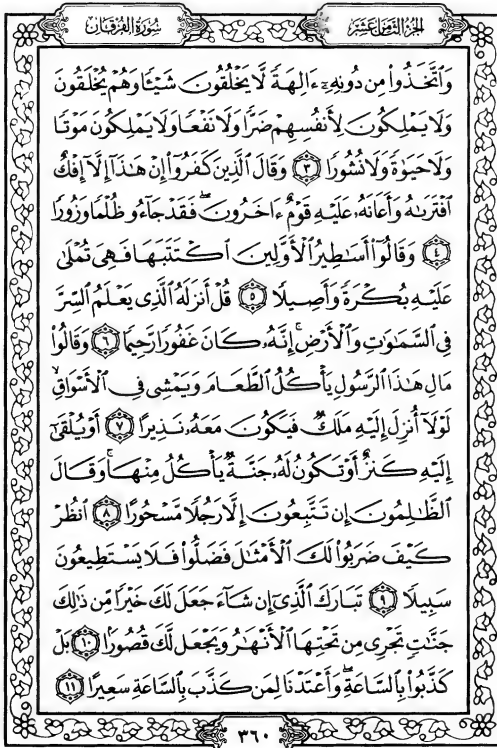 سُورَةُ الفُرْقَان
الجُزْءُ الثَّامِنَ عَشَرَ
وَٱتَّخَذُواْ مِن دُونِهِۦٓ ءَالِهَةً لَّا يَخْلُقُونَ شَيْـًٔا وَهُمْ يُخْلَقُونَ
وَلَا يَمْلِكُونَ لِأَنفُسِهِمْ ضَرًّا وَلَا نَفْعًا وَلَا يَمْلِكُونَ مَوْتًا
وَلَا حَيَوٰةً وَلَا نُشُورًا ٣ وَقَالَ ٱلَّذِينَ كَفَرُوٓاْ إِنْ هَٰذَآ إِلَّآ إِفْكٌ
ٱفْتَرَىٰهُ وَأَعَانَهُۥ عَلَيْهِ قَوْمٌ ءَاخَرُونَۖ فَقَدْ جَآءُو ظُلْمًا وَزُورًا
٤ وَقَالُوٓاْ أَسَٰطِيرُ ٱلْأَوَّلِينَ ٱكْتَتَبَهَا فَهِىَ تُمْلَىٰ
عَلَيْهِ بُكْرَةً وَأَصِيلًا ٥ قُلْ أَنزَلَهُ ٱلَّذِى يَعْلَمُ ٱلسِّرَّ
فِى ٱلسَّمَٰوَٰتِ وَٱلْأَرْضِۚ إِنَّهُۥ كَانَ غَفُورًا رَّحِيمًا ٦ وَقَالُواْ
مَالِ هَٰذَا ٱلرَّسُولِ يَأْكُلُ ٱلطَّعَامَ وَيَمْشِى فِى ٱلْأَسْوَاقِۙ
لَوْلَآ أُنزِلَ إِلَيْهِ مَلَكٌ فَيَكُونَ مَعَهُۥ نَذِيرًا ٧ أَوْ يُلْقَىٰٓ
إِلَيْهِ كَنزٌ أَوْ تَكُونُ لَهُۥ جَنَّةٌ يَأْكُلُ مِنْهَاۚ وَقَالَ
ٱلظَّٰلِمُونَ إِن تَتَّبِعُونَ إِلَّا رَجُلًا مَّسْحُورًا ٨ ٱنظُرْ
كَيْفَ ضَرَبُواْ لَكَ ٱلْأَمْثَٰلَ فَضَلُّواْ فَلَا يَسْتَطِيعُونَ
سَبِيلًا ٩ تَبَارَكَ ٱلَّذِىٓ إِن شَآءَ جَعَلَ لَكَ خَيْرًا مِّن ذَٰلِكَ
جَنَّٰتٍ تَجْرِى مِن تَحْتِهَا ٱلْأَنْهَٰرُ وَيَجْعَل لَّكَ قُصُورًۢا ١٠ بَلْ
كَذَّبُواْ بِٱلسَّاعَةِۖ وَأَعْتَدْنَا لِمَن كَذَّبَ بِٱلسَّاعَةِ سَعِيرًا ١١
٣٦٠